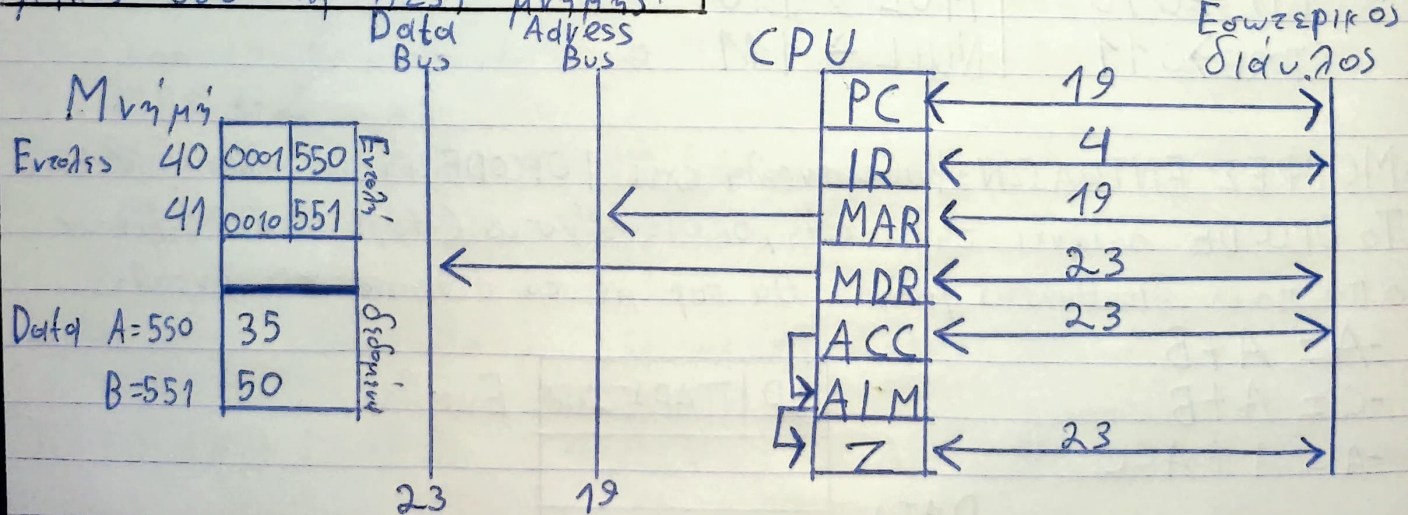 Data Bus
Adress Bus
CPU
Εσωτερικος διάυλος
Μνήμή
Εντολες 40 0001 550
41 0010 551
Εντολή
Data A=550 35
B=551 50
δεδομένα
PC 19
IR 4
MAR 19
MDR 23
ACC 23
ALM
Z 23
23
19